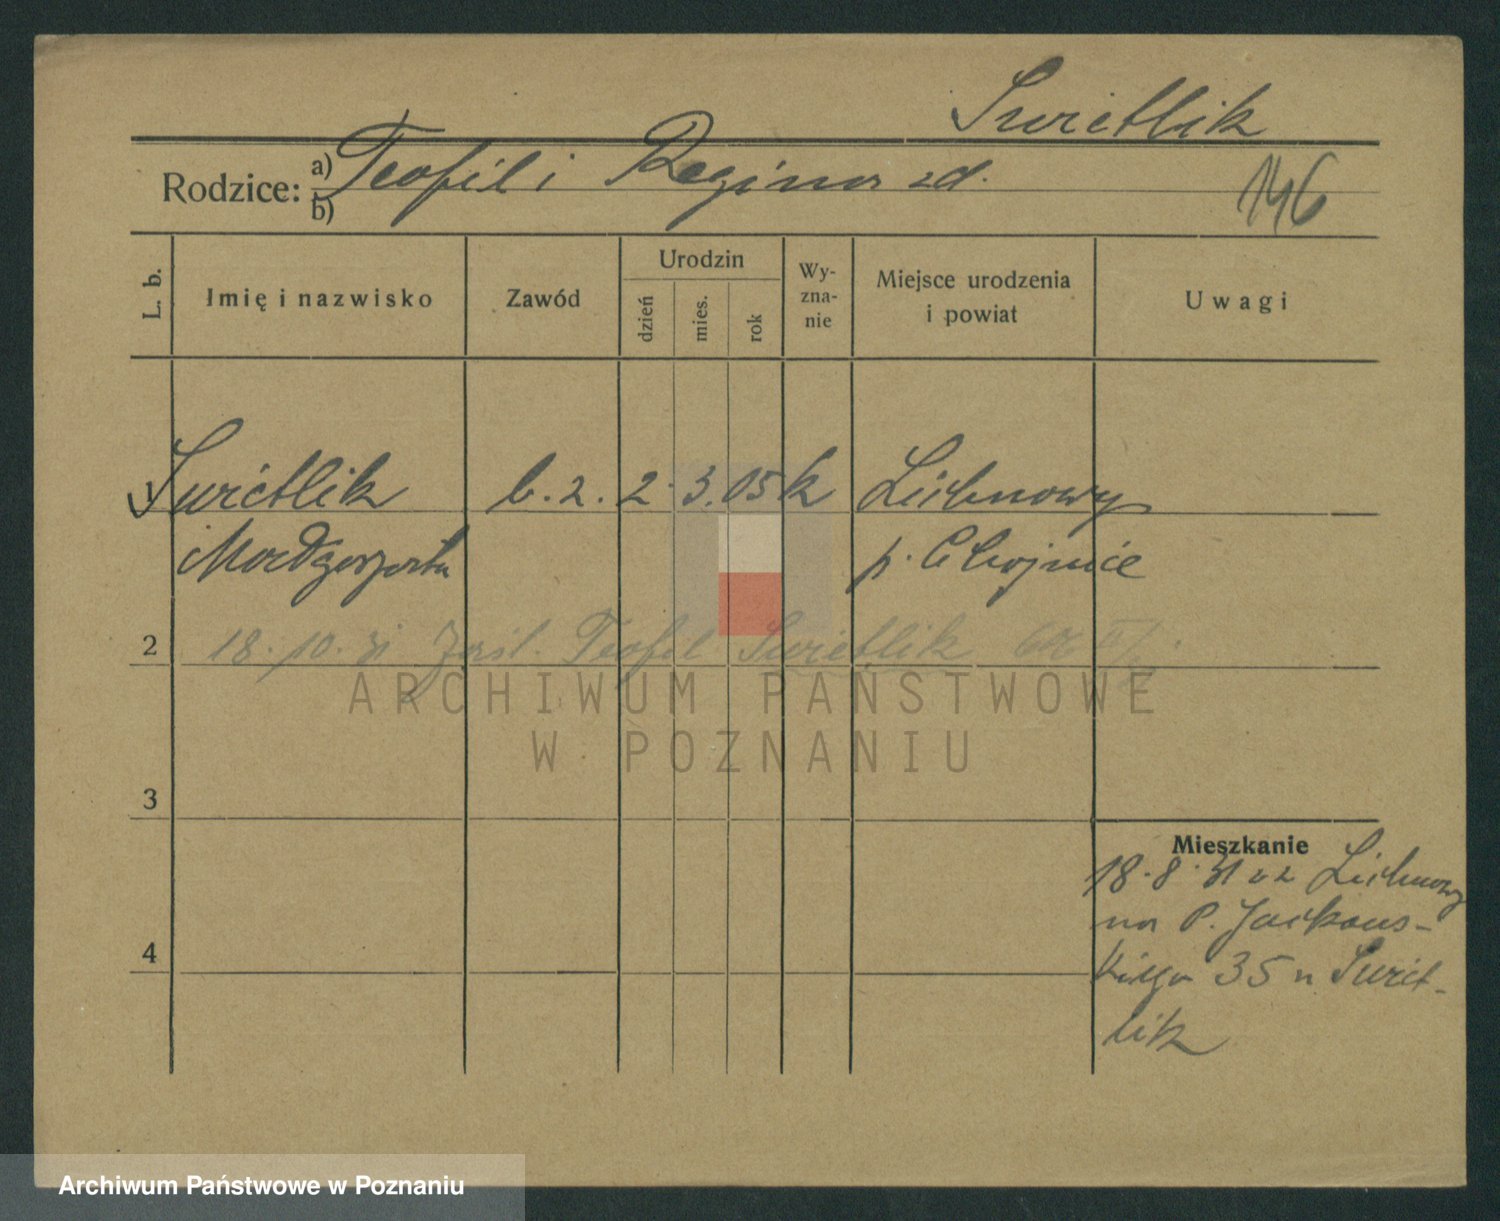 Swietlik
Rodzice: a) Teofil i Regina zd.
b)
146
L. b. Imię i nazwisko Zawód Urodzin dzień mies. rok Wy-zna-nie Miejsce urodzenia i powiat Uwagi
1 Swietlik b. z. 2. 3. 05 k Lichnowy
Małgorzata p. Chojnice
2 18. 10. 31 Teofil Swietlik
3
Mieszkanie
18. 8. 31 z Lichnowy
na P. Jackows-
kiego 35 u Swiet-
lik
4
ARCHIWUM PAŃSTWOWE
W POZNANIU
Archiwum Państwowe w Poznaniu